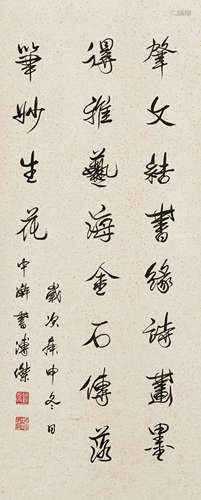 肇文結書緣詩畫墨
得雅藝海金石傳落
筆妙生花
歲次庚申冬日
中澣書溥傑